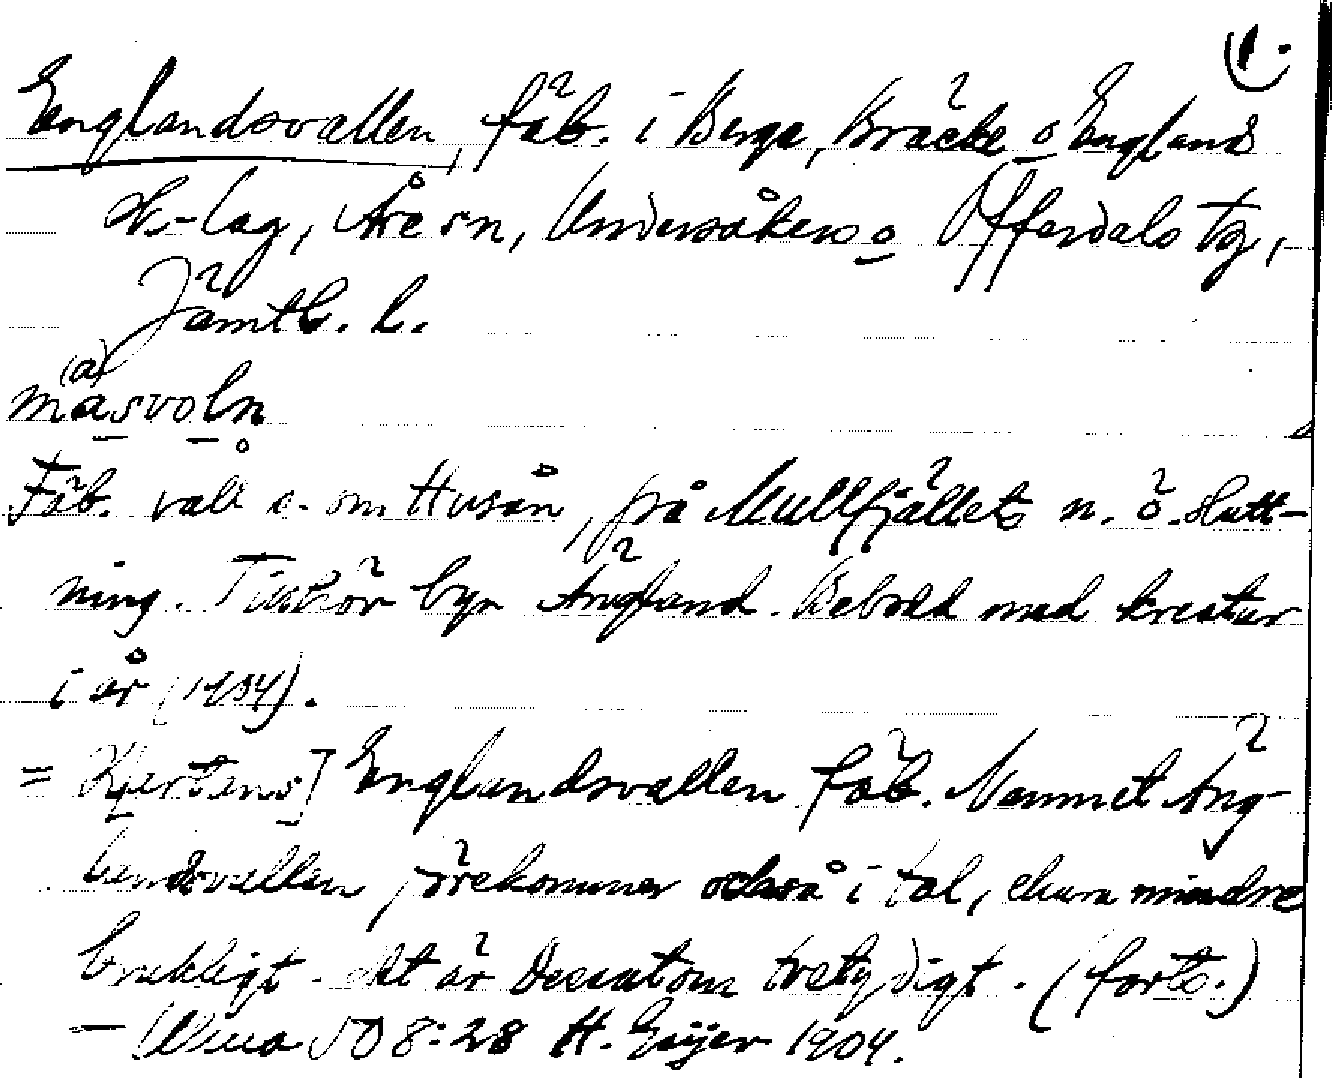 1.
Englandsvallen, fäb. i Berge, Bräcke o England
sk-lag, Åre sn, Undersåkers o Offerdals tg,
Jämtl. l.
(a)
mäsvoln
Fäb. vall s. om Huså, på Mullfjällets n. ö. slutt-
ning. Tillhör byn Ängland. Bebodd med kreatur
i år (1904).
= Englandsvallen fäb. Namnet Äng-
landsvallen förekommer också i tal, ehuru mindre
brukligt. det är dessutom tvetydigt. (forts.)
– Ulma 508:28 H. Geijer 1904.